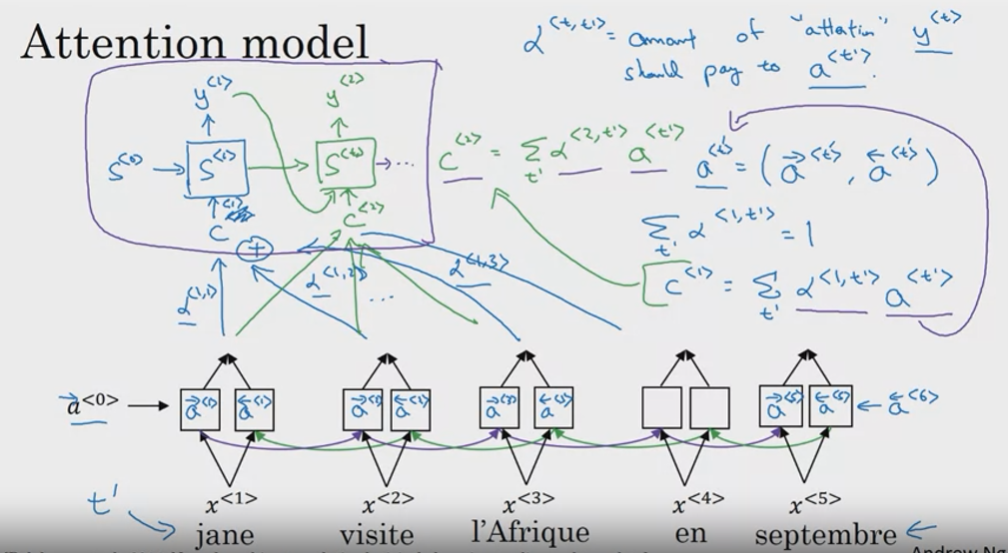 Attention model
α<t,t'> = amount of "attention" y<t>
should pay to a<t'>.
y<1> y<2>
S<0> → S<1> → S<t> → ...
C<2> = Σt' α<2,t'> a<t'>
a<t'> = (a→<t'>, a←<t'>)
<1>
C + C<2>
Σt' α<1,t'> = 1
C<1> = Σt' α<1,t'> a<t'>
α<1,1> α<1,2> ... α<1,3>
a→<0> → a→<1> a←<1> a→<2> a←<2> a→<3> a←<3> a→<5> a←<5> ← a←<6>
t' x<1> x<2> x<3> x<4> x<5>
jane visite l'Afrique en septembre ←